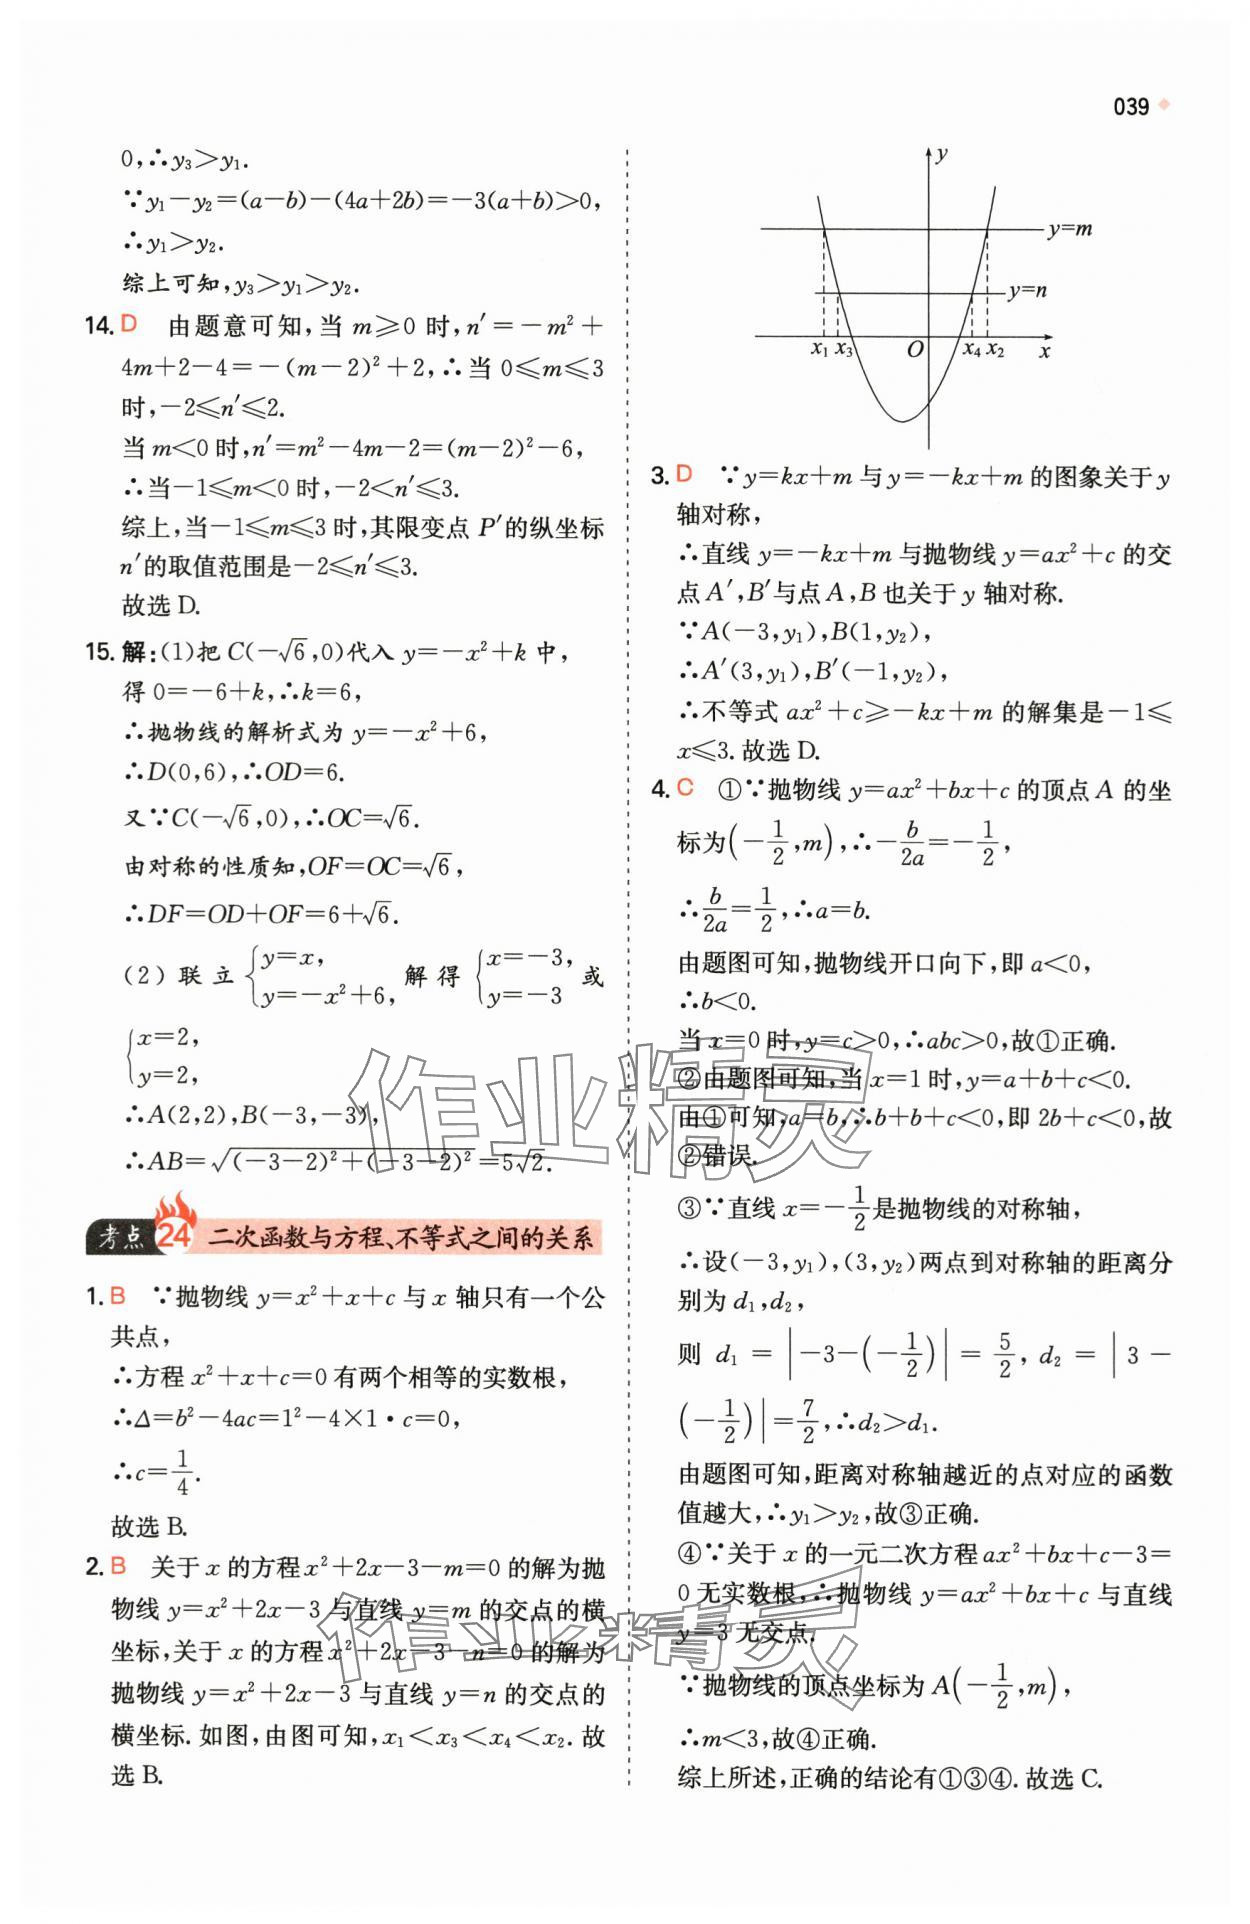 039
0,∴y₃>y₁.
∵y₁-y₂=(a-b)-(4a+2b)=-3(a+b)>0,
∴y₁>y₂.
综上可知,y₃>y₁>y₂.
14. D 由题意可知,当 m≥0 时,n′=-m²+
4m+2-4=-(m-2)²+2,∴当 0≤m≤3
时,-2≤n′≤2.
当 m<0 时,n′=m²-4m-2=(m-2)²-6,
∴当-1≤m<0 时,-2<n′≤3.
综上,当-1≤m≤3 时,其限变点 P′的纵坐标
n′的取值范围是-2≤n′≤3.
故选 D.
15. 解:(1)把 C(-√6,0)代入 y=-x²+k 中,
得 0=-6+k,∴k=6,
∴抛物线的解析式为 y=-x²+6,
∴D(0,6),∴OD=6.
又∵C(-√6,0),∴OC=√6.
由对称的性质知,OF=OC=√6,
∴DF=OD+OF=6+√6.
(2) 联立{y=x, y=-x²+6, 解得{x=-3, y=-3 或
{x=2, y=2,
∴A(2,2),B(-3,-3),
∴AB=√((-3-2)²+(-3-2)²)=5√2.
考点 24 二次函数与方程、不等式之间的关系
1. B ∵抛物线 y=x²+x+c 与 x 轴只有一个公
共点,
∴方程 x²+x+c=0 有两个相等的实数根,
∴Δ=b²-4ac=1²-4×1·c=0,
∴c=1/4.
故选 B.
2. B 关于 x 的方程 x²+2x-3-m=0 的解为抛
物线 y=x²+2x-3 与直线 y=m 的交点的横
坐标,关于 x 的方程 x²+2x-3-n=0 的解为
抛物线 y=x²+2x-3 与直线 y=n 的交点的
横坐标. 如图,由图可知,x₁<x₃<x₄<x₂. 故
选 B.
y
y=m
y=n
x₁ x₃ O x₄ x₂ x
3. D ∵y=kx+m 与 y=-kx+m 的图象关于 y
轴对称,
∴直线 y=-kx+m 与抛物线 y=ax²+c 的交
点 A′,B′与点 A,B 也关于 y 轴对称.
∵A(-3,y₁),B(1,y₂),
∴A′(3,y₁),B′(-1,y₂),
∴不等式 ax²+c≥-kx+m 的解集是-1≤
x≤3. 故选 D.
4. C ①∵抛物线 y=ax²+bx+c 的顶点 A 的坐
标为(-1/2,m),∴-b/2a=-1/2,
∴b/2a=1/2,∴a=b.
由题图可知,抛物线开口向下,即 a<0,
∴b<0.
当 x=0 时,y=c>0,∴abc>0,故①正确.
②由题图可知,当 x=1 时,y=a+b+c<0.
由①可知,a=b,∴b+b+c<0,即 2b+c<0,故
②错误.
③∵直线 x=-1/2是抛物线的对称轴,
∴设(-3,y₁),(3,y₂)两点到对称轴的距离分
别为 d₁,d₂,
则 d₁=|-3-(-1/2)|=5/2, d₂=|3-
(-1/2)|=7/2,∴d₂>d₁.
由题图可知,距离对称轴越近的点对应的函数
值越大,∴y₁>y₂,故③正确.
④∵关于 x 的一元二次方程 ax²+bx+c-3=
0 无实数根,∴抛物线 y=ax²+bx+c 与直线
y=3 无交点.
∵抛物线的顶点坐标为 A(-1/2,m),
∴m<3,故④正确.
综上所述,正确的结论有①③④. 故选 C.
作业精灵
作业精灵